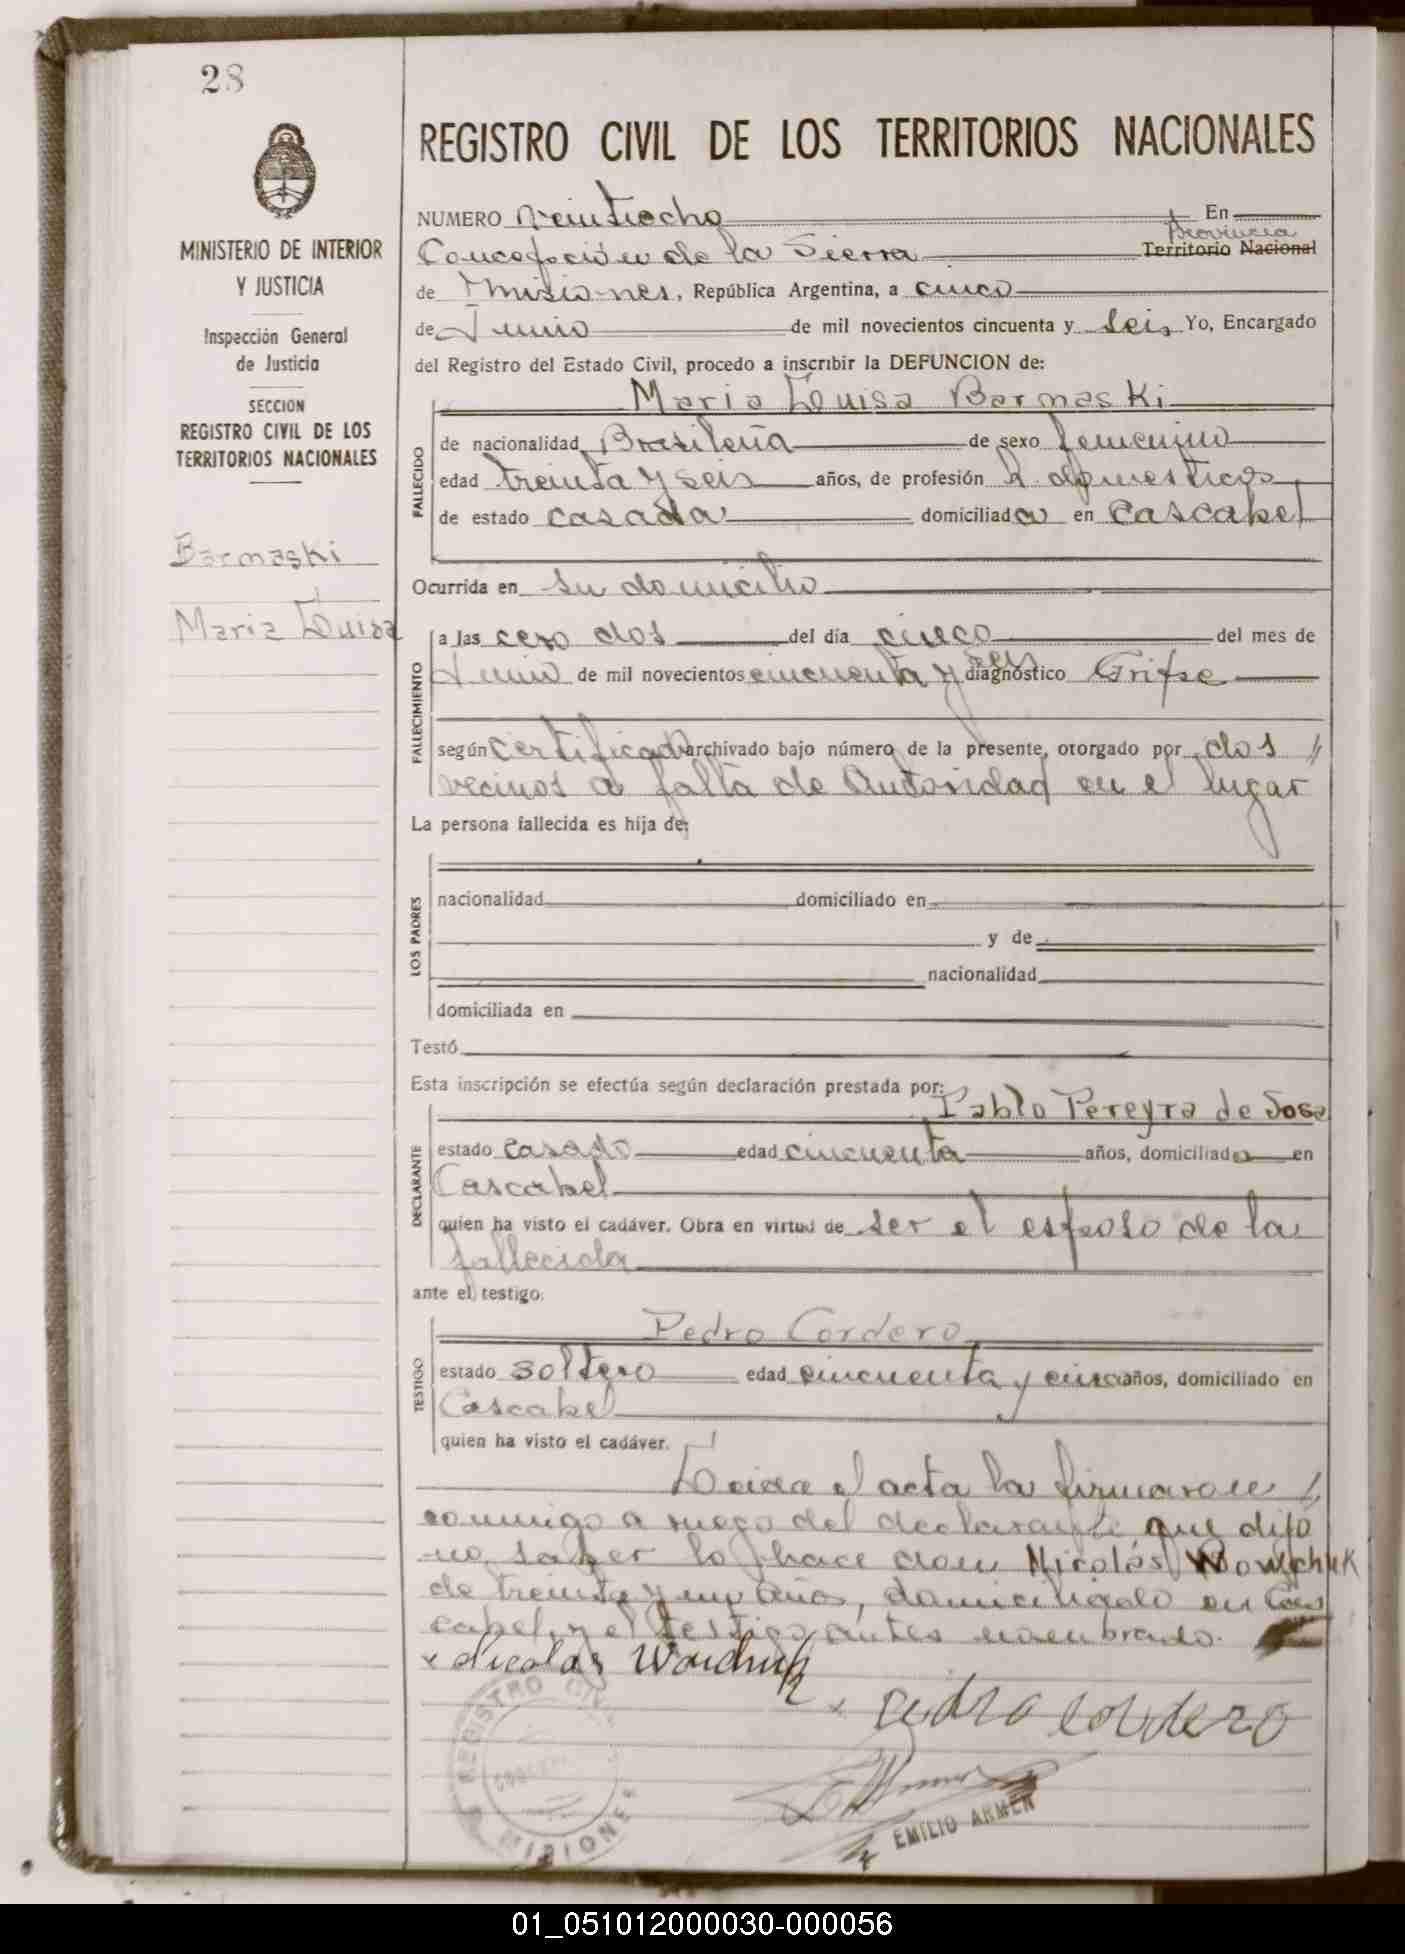 28
MINISTERIO DE INTERIOR
Y JUSTICIA
Inspección General
de Justicia
SECCION
REGISTRO CIVIL DE LOS
TERRITORIOS NACIONALES
Barmaski
Maria Luisa
REGISTRO CIVIL DE LOS TERRITORIOS NACIONALES
NUMERO Veintiocho En
Concepción de la Sierra Provincia Territorio Nacional
de Misiones, República Argentina, a cinco
de Junio de mil novecientos cincuenta y seis Yo, Encargado
del Registro del Estado Civil, procedo a inscribir la DEFUNCION de:
FALLECIDO
Maria Luisa Barmaski
de nacionalidad Brasileña de sexo femenino
edad treinta y seis años, de profesión q. domesticos
de estado casada domiciliada en Cascabel
Ocurrida en su domicilio
FALLECIMIENTO
a las cero dos del día cinco del mes de
Junio de mil novecientos cincuenta y seis diagnóstico Gripe
según certificado archivado bajo número de la presente, otorgado por dos
vecinos a falta de Autoridad en el lugar
La persona fallecida es hija de:
LOS PADRES
nacionalidad domiciliado en
y de
nacionalidad
domiciliada en
Testó
Esta inscripción se efectúa según declaración prestada por:
DECLARANTE
Pablo Pereyra de Sosa
estado casado edad cincuenta años, domiciliado en
Cascabel
quien ha visto el cadáver. Obra en virtud de ser el esposo de la
fallecida
ante el testigo:
TESTIGO
Pedro Cordero
estado soltero edad cincuenta y cinco años, domiciliado en
Cascabel
quien ha visto el cadáver.
Leida el acta la firmaron
conmigo a ruego del declarante que dijo
no saber lo hace don Nicolás
de treinta y un años, domiciliado en Cas
cabel, y el testigo antes nombrado.
x Nicolas
x Pedro Cordero
REGISTRO CIVIL
MISIONES
EMILIO ARMEN
01_051012000030-000056